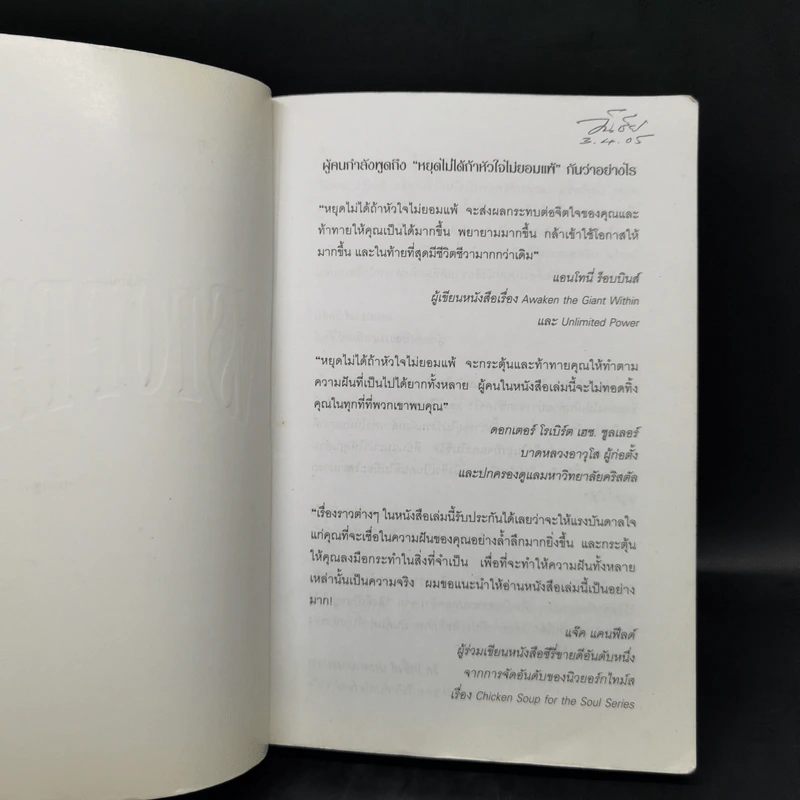 วันชัย
3.4.05
ผู้คนกำลังพูดถึง "หยุดไม่ได้ถ้าหัวใจไม่ยอมแพ้" กันว่าอย่างไร
"หยุดไม่ได้ถ้าหัวใจไม่ยอมแพ้ จะส่งผลกระทบต่อจิตใจของคุณและ
ท้าทายให้คุณเป็นได้มากขึ้น พยายามมากขึ้น กล้าเข้าใช้โอกาสให้
มากขึ้น และในท้ายที่สุดมีชีวิตชีวามากกว่าเดิม"
แอนโทนี่ ร็อบบินส์
ผู้เขียนหนังสือเรื่อง Awaken the Giant Within
และ Unlimited Power
"หยุดไม่ได้ถ้าหัวใจไม่ยอมแพ้ จะกระตุ้นและท้าทายคุณให้ทำตาม
ความฝันที่เป็นไปได้ยากทั้งหลาย ผู้คนในหนังสือเล่มนี้จะไม่ทอดทิ้ง
คุณในทุกที่ที่พวกเขาพบคุณ"
ดอกเตอร์ โรเบิร์ต เฮช. ชูลเลอร์
บาดหลวงอาวุโส ผู้ก่อตั้ง
และปกครองดูแลมหาวิทยาลัยคริสตัล
"เรื่องราวต่างๆ ในหนังสือเล่มนี้รับประกันได้เลยว่าจะให้แรงบันดาลใจ
แก่คุณที่จะเชื่อในความฝันของคุณอย่างล้ำลึกมากยิ่งขึ้น และกระตุ้น
ให้คุณลงมือกระทำในสิ่งที่จำเป็น เพื่อที่จะทำให้ความฝันทั้งหลาย
เหล่านั้นเป็นความจริง ผมขอแนะนำให้อ่านหนังสือเล่มนี้เป็นอย่าง
มาก!
แจ๊ค แคนฟีลด์
ผู้ร่วมเขียนหนังสือซีรี่ขายดีอันดับหนึ่ง
จากการจัดอันดับของนิวยอร์กไทม์ส
เรื่อง Chicken Soup for the Soul Series